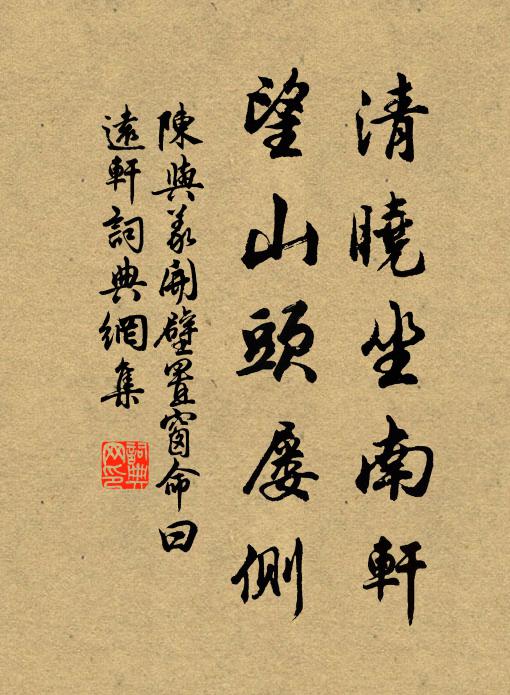 清曉坐南軒
望山頭屡側
陳與義開壁置窗命曰
遠軒詞典網集
詞典网印